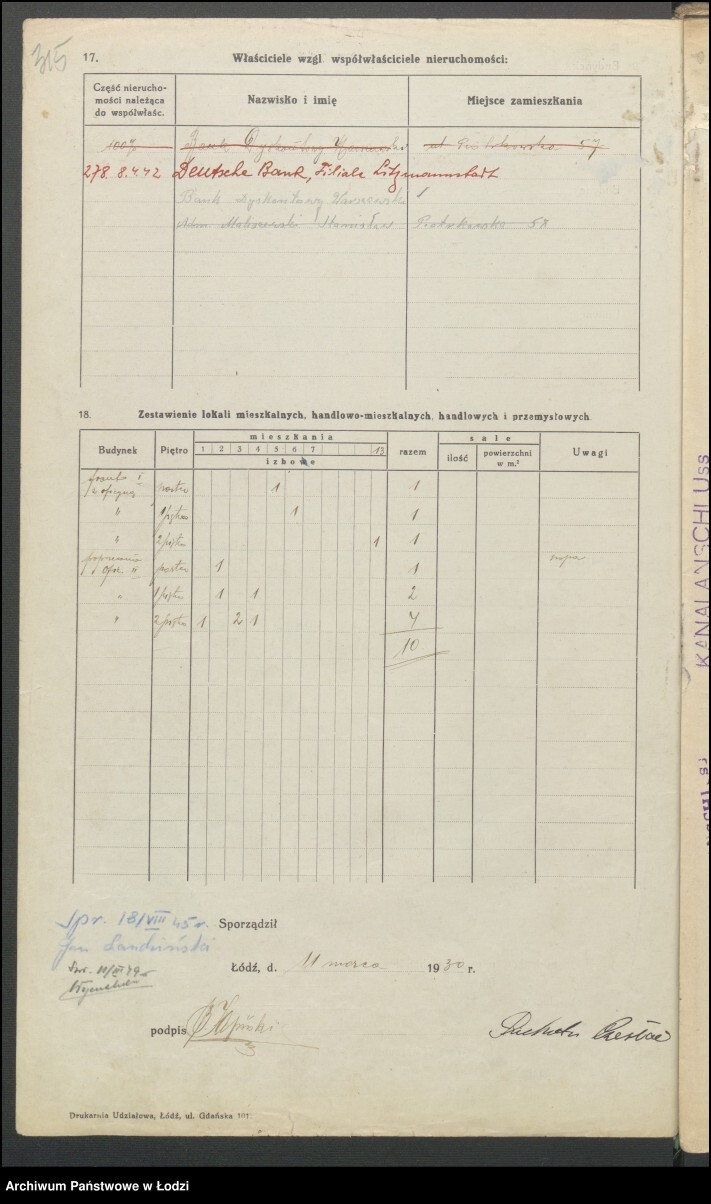 315
17. Właściciele wzgl. współwłaściciele nieruchomości:
Część nierucho-
mości należąca
do współwłaśc.
Nazwisko i imię
Miejsce zamieszkania
100% Bank Dyskontowy Warszawski ul. Piotrkowska 57
278. 8.4.42 Deutsche Bank, Filiale Litzmannstadt
Bank Dyskontowy Warszawski
Stanisław Piotrkowska
18. Zestawienie lokali mieszkalnych, handlowo-mieszkalnych, handlowych i przemysłowych.
Budynek
Piętro
mieszkania
1 2 3 4 5 6 7 13
izbowe
razem
sale
ilość
powierzchni
w m.²
Uwagi
front I
parter 1 1
" 1 piętro 1 1
" 2 piętro 1 1
parter 1 1
" 1 piętro 1 1 2
" 2 piętro 1 2 1 4
10
Spr. 18/VIII 45 r.
Jan
Sporządził
Łódź, d. 11 marca 1930 r.
podpis
Drukarnia Udziałowa, Łódź, ul. Gdańska 101.
KANALANSCHLUSS
Archiwum Państwowe w Łodzi